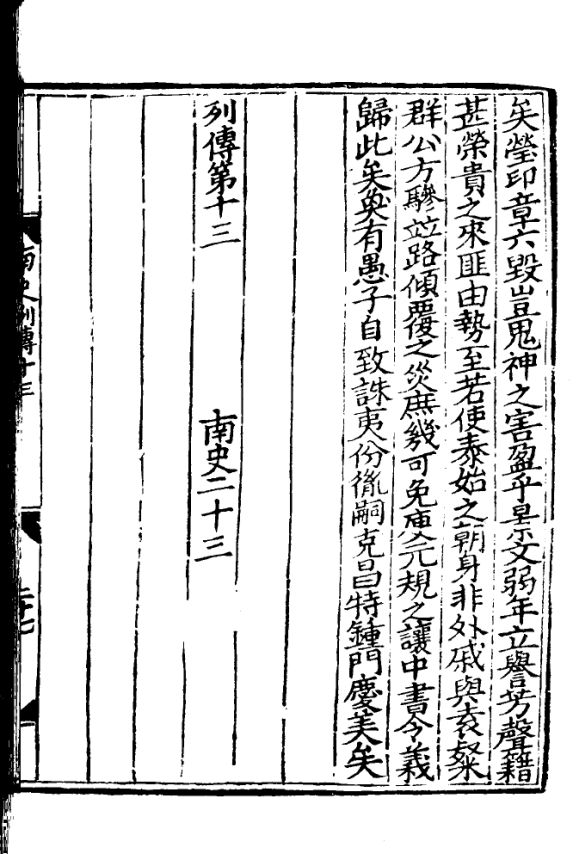 矣瑩印章六毀豈鬼神之害盈乎景文弱年立譽芳聲籍
甚榮貴之來匪由勢至若使泰始之朝身非外戚與袁粲
群公方驂竝路傾覆之災庶幾可免庾元規之讓中書令義
歸此矣奐有愚子自致誅夷份胤嗣克昌特鍾門慶美矣
列傳第十三
南史二十三
南史列傳十三
二十七